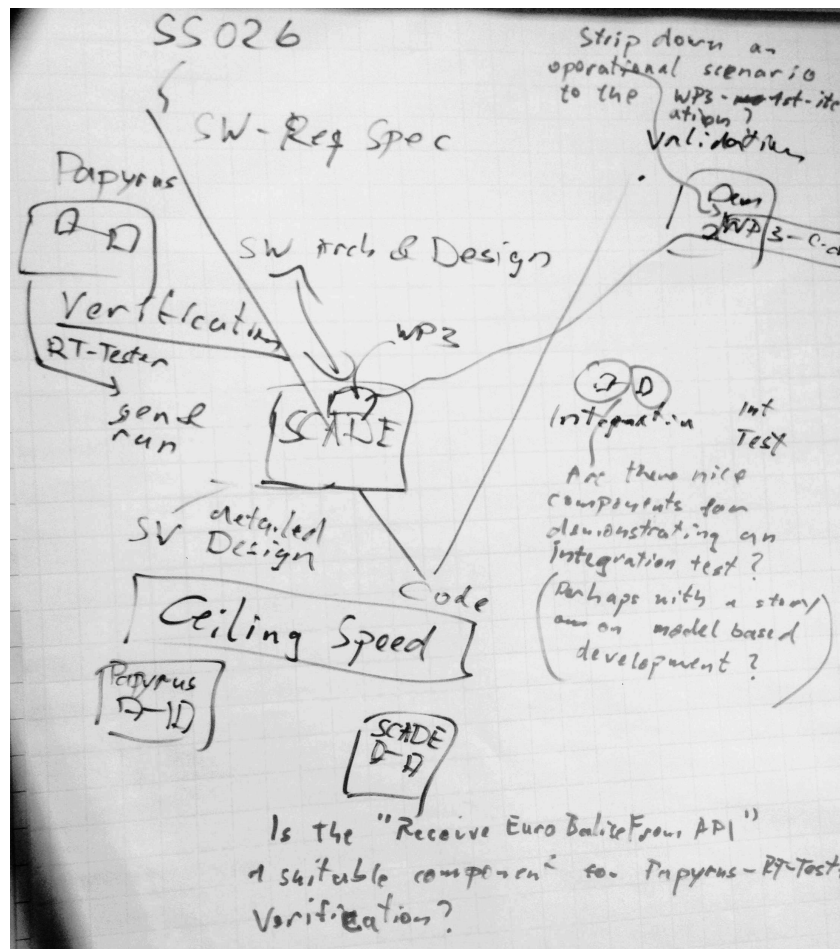 SS026
Strip down an
operational scenario
to the WP3-1st-ite
ation?
Validation
SW-Req Spec
Papyrus
Dem
2 WP3-
SW Arch & Design
Verification
RT-Tester
gen &
run
WP3
SCADE
Integration
Int
Test
Are there nice
components for
demonstrating an
integration test?
(Perhaps with a story
on model based
development?)
SW detailed
Design
Code
Ceiling Speed
Papyrus
SCADE
Is the "Receive EuroBaliseFrom API"
a suitable component for Papyrus-RT-Test
Verification?